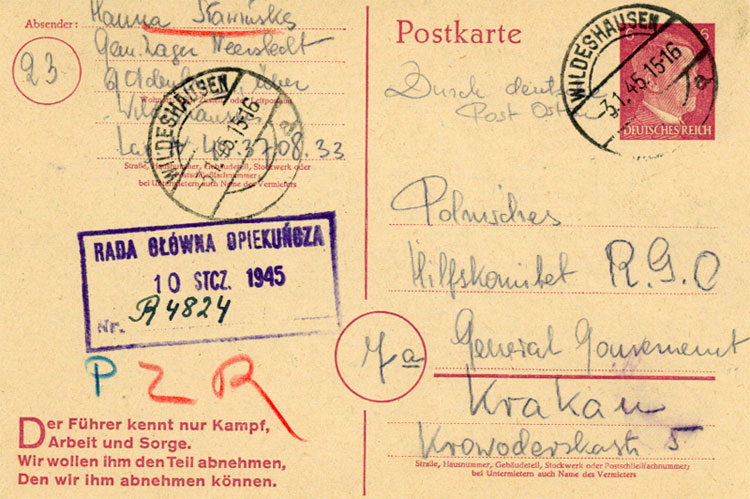 Absender:
Hanna Sławińska
Gem. Lager Neerstedt
Oldenburg, über
Wildeshausen
23
Lag. 4
33
Straße, Hausnummer, Gebäudeteil, Stockwerk oder
Postschließfachnummer;
bei Untermietern auch Name des Vermieters
WILDESHAUSEN
15-16
a
RADA GŁÓWNA OPIEKUŃCZA
10 STCZ. 1945
Nr. R 4824
P Z R
Der Führer kennt nur Kampf,
Arbeit und Sorge.
Wir wollen ihm den Teil abnehmen,
Den wir ihm abnehmen können.
Postkarte
Durch deutsche
Post Osten
WILDESHAUSEN
-3.1.45.15-16
a
6
6
DEUTSCHES REICH
Polnisches
Hilfskomitet R.G.O
7a
General Gouvernement
Krakau
Krowoderskastr 5
Straße, Hausnummer, Gebäudeteil, Stockwerk oder Postschließfachnummer;
bei Untermietern auch Name des Vermieters